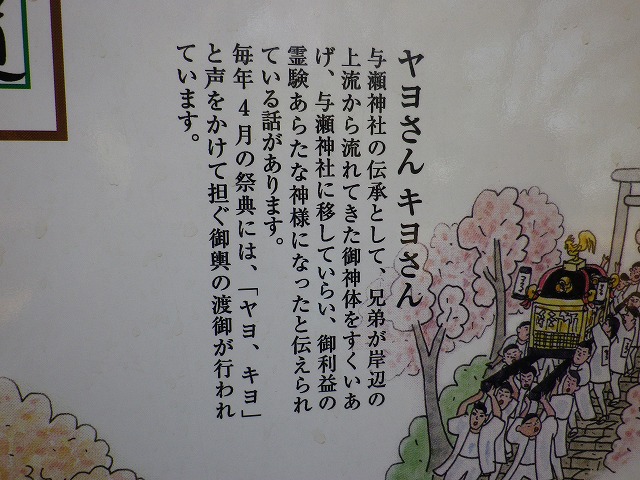 ヤヨさん キヨさん
与瀬神社の伝承として、兄弟が岸辺の
上流から流れてきた御神体をすくいあ
げ、与瀬神社に移していらい、御利益の
霊験あらたな神様になったと伝えられ
ている話があります。
毎年4月の祭典には、「ヤヨ、キヨ」
と声をかけて担ぐ御輿の渡御が行われ
ています。